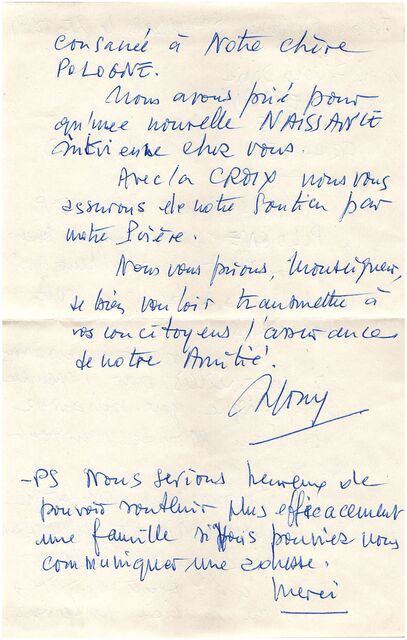 consacrée à Notre chère
POLOGNE.
Nous avons prié pour
qu'une nouvelle NAISSANCE
intervienne chez vous.
Avec la CROIX nous vous
assurons de notre Soutien par
notre Prière.
Nous vous prions, Monseigneur,
de bien vouloir transmettre à
vos concitoyens l'assurance
de notre Amitié.
- PS Nous serions heureux de
pouvoir soutenir plus efficacement
une famille si vous pouviez nous
communiquer une adresse.
Merci